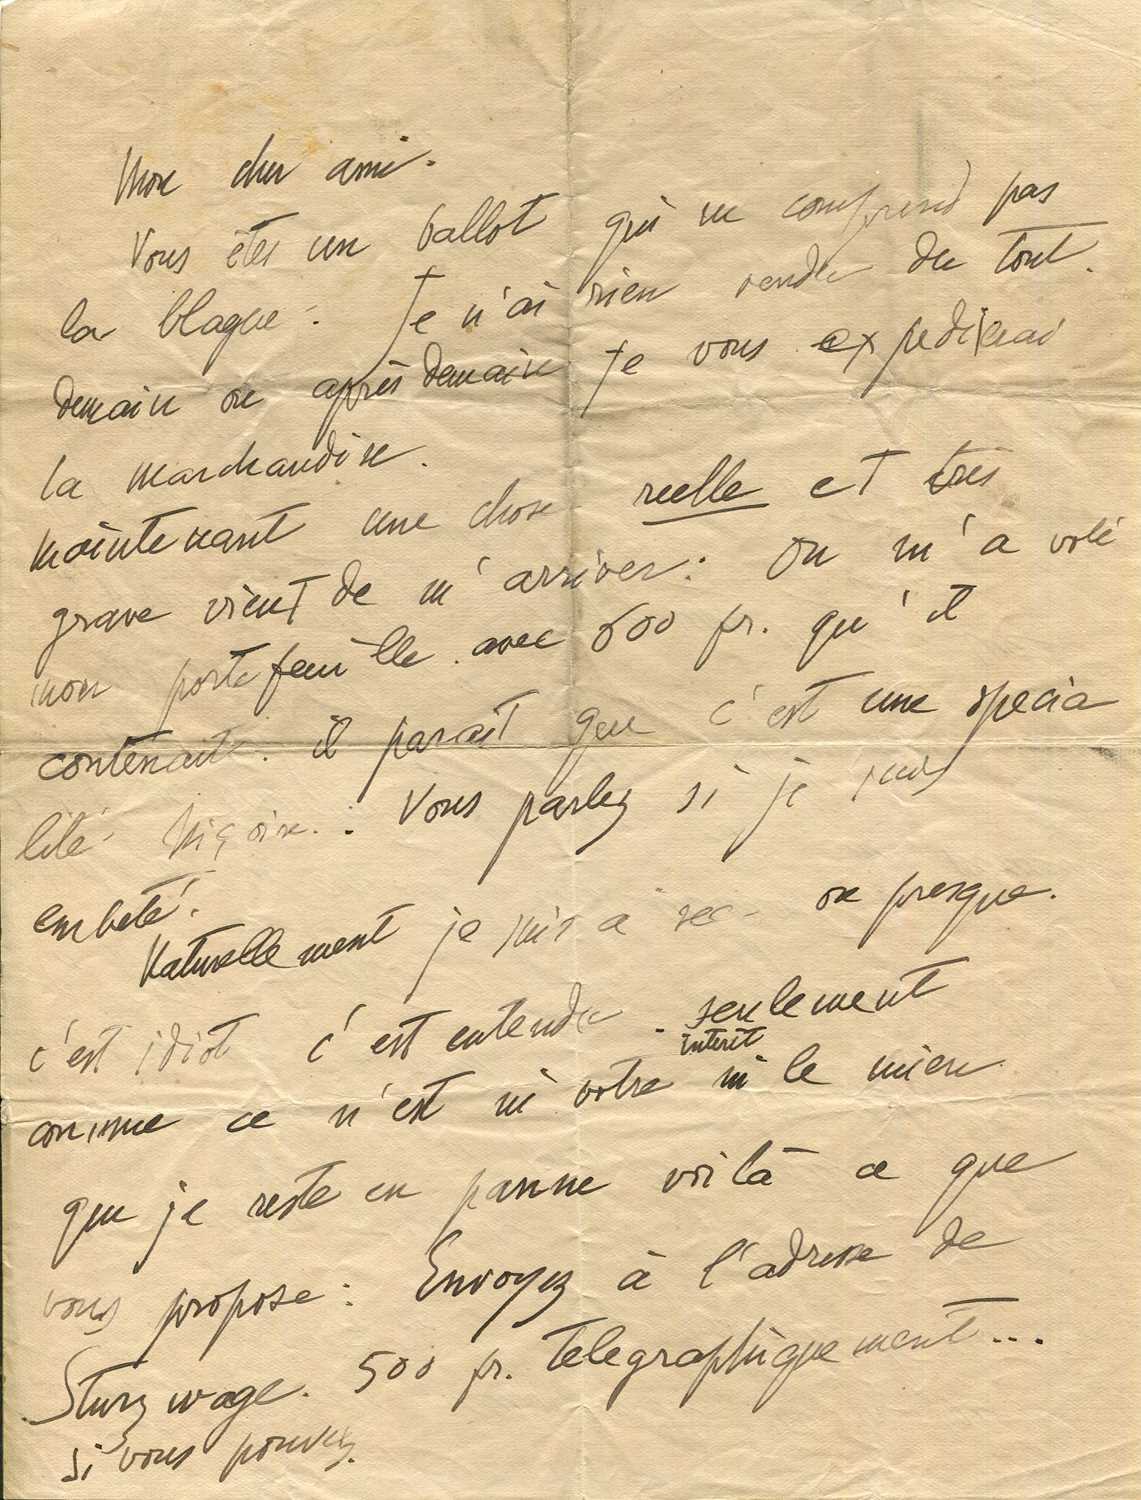 Mon cher ami.
Vous êtes un ballot qui ne comprend pas
la blague. Je n'ai rien vendu du tout.
demain ou après demain je vous expedierai
la marchandise.
maintenant une chose reelle et très
grave vient de m'arriver: On m'a volé
mon portefeuille avec 600 fr. qu'il
contenait. il parait que c'est une specia
lité Niçoise. Vous parlez si je suis
embeté.
Naturellement je suis a sec ou presque.
c'est idiot c'est entendu. seulement
interêt
comme ce n'est ni votre ni le mien
que je reste en panne voilà ce que
vous propose: Envoyez à l'adresse de
Sturzwage. 500 fr. telegraphiquement...
si vous pouvez.